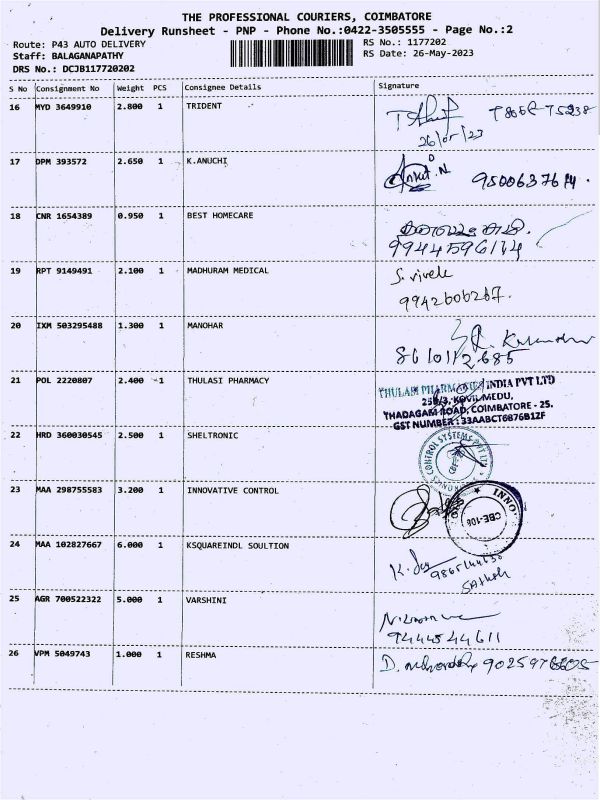 THE PROFESSIONAL COURIERS, COIMBATORE
Delivery Runsheet - PNP - Phone No.:0422-3505555 - Page No.:2
Route: P43 AUTO DELIVERY RS No.: 1177202
Staff: BALAGANAPATHY RS Date: 26-May-2023
DRS No.: DCJB117720202
S No Consignment No Weight PCS Consignee Details Signature
16 MYD 3649910 2.800 1 TRIDENT
26/05/23
17 DPM 393572 2.650 1 K.ANUCHI
Ankit.N 9500637614.
18 CNR 1654389 0.950 1 BEST HOMECARE
9944596174
19 RPT 9149491 2.100 1 MADHURAM MEDICAL S. vivek
9942606267.
20 IXM 503295488 1.300 1 MANOHAR
8610112685
21 POL 2220807 2.400 1 THULASI PHARMACY THULASI PHARMACIES INDIA PVT LTD
258/3, KOVILMEDU,
THADAGAM ROAD, COIMBATORE - 25.
GST NUMBER : 33AABCT6876B1ZF
22 HRD 360030545 2.500 1 SHELTRONIC
CONTROL SYSTEMS PVT L
23 MAA 298755583 3.200 1 INNOVATIVE CONTROL
INNO
CBE-108
24 MAA 102827667 6.000 1 KSQUAREINDL SOULTION
Sathish
25 AGR 700522322 5.000 1 VARSHINI
9444544611
26 VPM 5049743 1.000 1 RESHMA